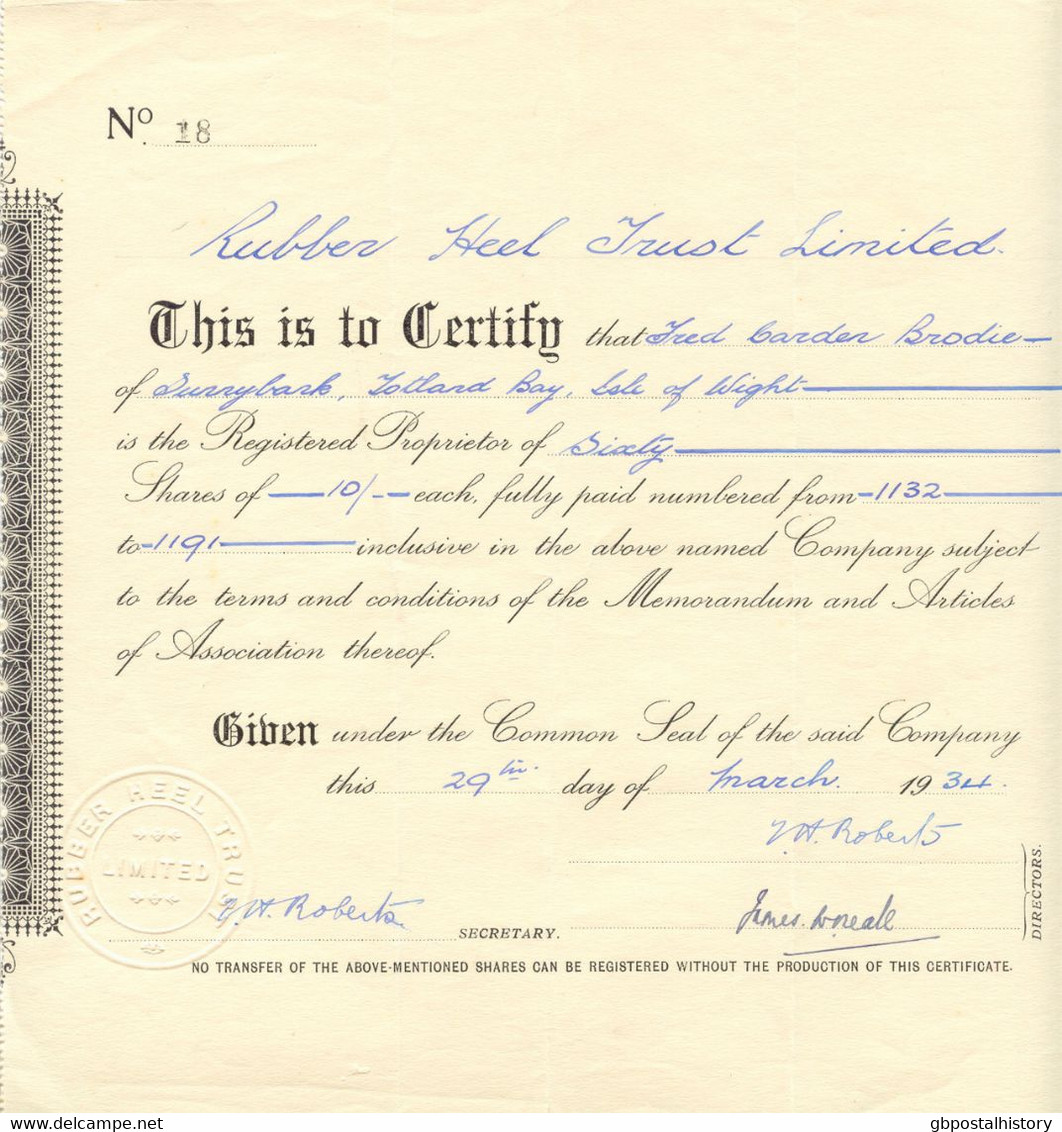 No. 18
Rubber Heel Trust Limited.
This is to Certify that Fred Carder Brodie
of Sunnybank, Totland Bay, Isle of Wight
is the Registered Proprietor of Sixty
Shares of 10/- each, fully paid numbered from 1132
to 1191 inclusive in the above named Company subject
to the terms and conditions of the Memorandum and Articles
of Association thereof.
Given under the Common Seal of the said Company
this 29th day of March. 1934.
RUBBER HEEL TRUST
LIMITED
Roberts
DIRECTORS.
Roberts
SECRETARY.
James
NO TRANSFER OF THE ABOVE-MENTIONED SHARES CAN BE REGISTERED WITHOUT THE PRODUCTION OF THIS CERTIFICATE.
delcampe.net
gbpostalhistory